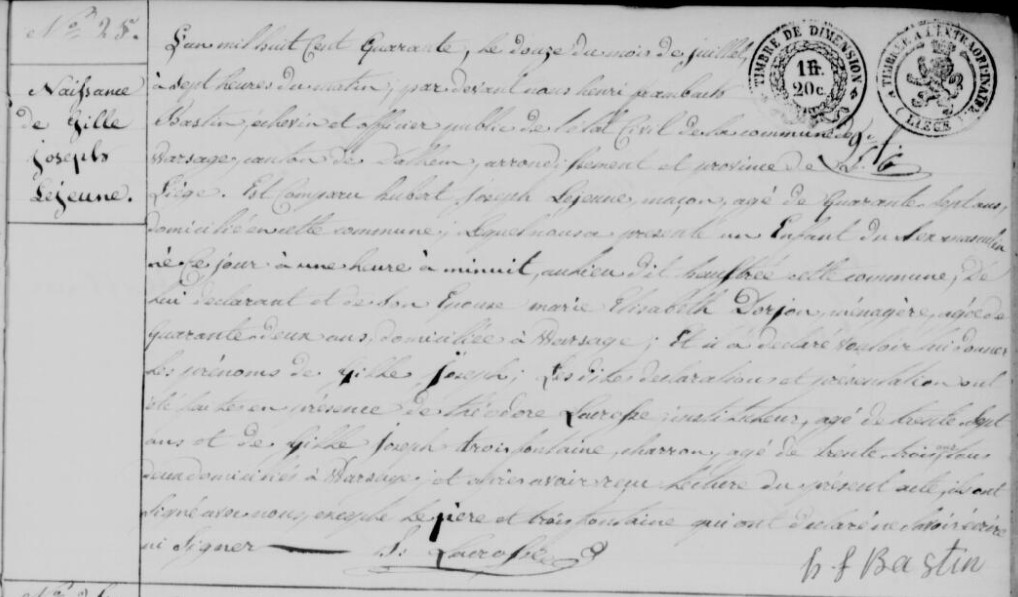 N° 25.
Naissance
de Gille
joseph
Lejeune.
L'an mil huit Cent Quarante, le douze du mois de juillet,
à Sept heures du matin, par devant nous henri
Bastin, echevin et officier public de l'état Civil de la commune de
Warsage, canton de Dalhem, arrondissement et province de
Liège. Est Comparu hubert joseph Lejeune, maçon, agé de Quarante Sept ans,
domicilié en cette commune; Lequel nous a presenté un Enfant du Sexe masculin
né Ce jour à une heure à minuit, au lieu dit cette commune, De
lui declarant et de Son Epouse marie Elisabeth Dorjon, ménagère, agée de
Quarante deux ans, domiciliée à Warsage; Et il a declaré vouloir lui donner
Les prénoms de Gille Joseph; Les dites declaration et présentation ont
été faites en présence de théodore Lacrosse instituteur, agé de trente Sept
ans et de Gille Joseph troisfontaine, charron, agé de trente trois ans, tous
deux domiciliés à Warsage; et après avoir reçu Lecture du présent acte, ils ont
Signé avec nous, excepté Le père et troisfontaine qui ont declaré ne Savoir écrire
ni Signer
Lacrosse
h f Bastin
TIMBRE DE DIMENSION
1 fr.
20 c.
TIMBRE A L'EXTRAORDINAIRE
LIEGE